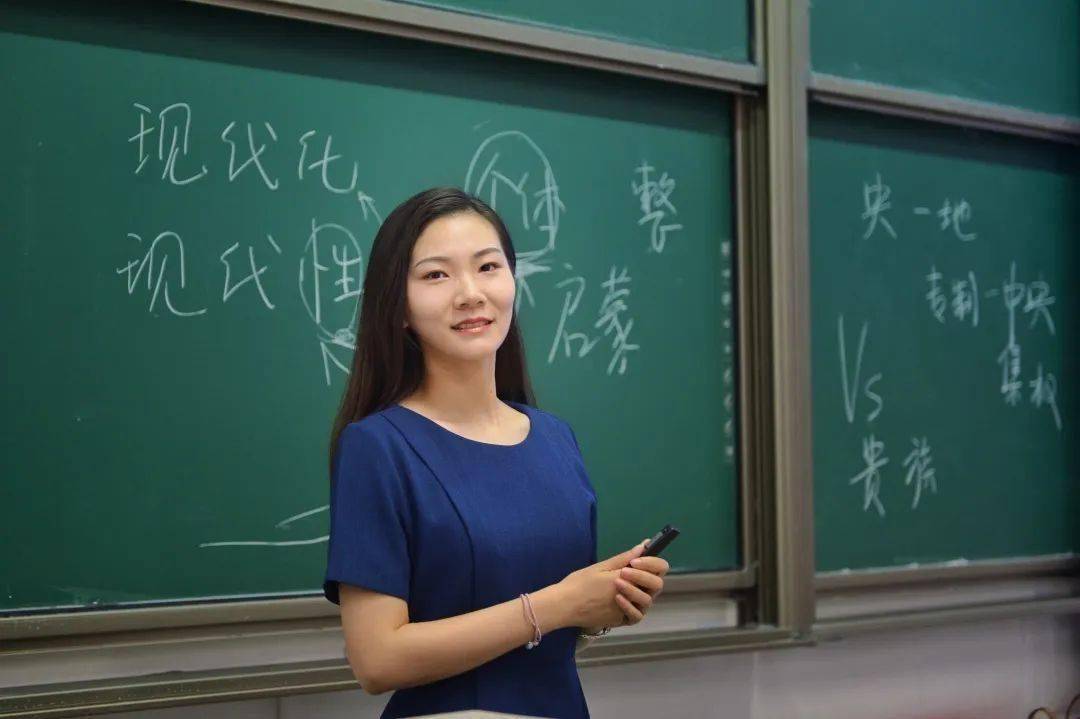 现代化 个体 整
现代性 启蒙
央-地
专制-中央
集权
Vs
贵族